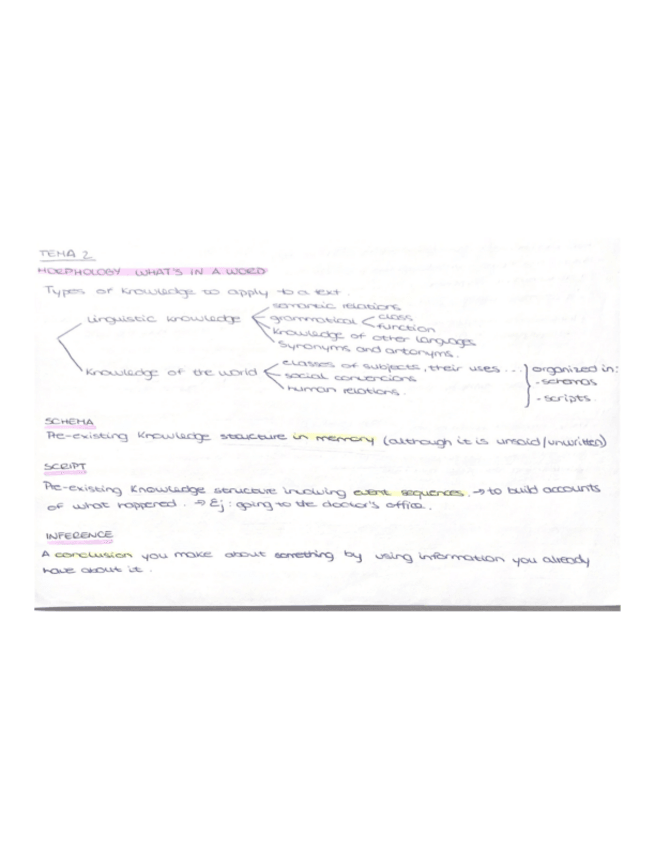 TEMA 2
MORPHOLOGY WHAT'S IN A WORD
Types of knowledge to apply to a text.
Linguistic knowledge
semantic relations
grammatical
class
function
Knowledge of other languages
Synonyms and antonyms.
Knowledge of the world
classes of subjects, their uses...
social convencions
human relations.
organized in:
- schemas
- scripts.
SCHEMA
Pre-existing knowledge structure in memory (although it is unsaid/unwritten)
SCRIPT
Pre-existing knowledge structure involving event sequences. → to build accounts
of what happened. → Ej: going to the doctor's office.
INFERENCE
A conclusion you make about something by using information you already
have about it.